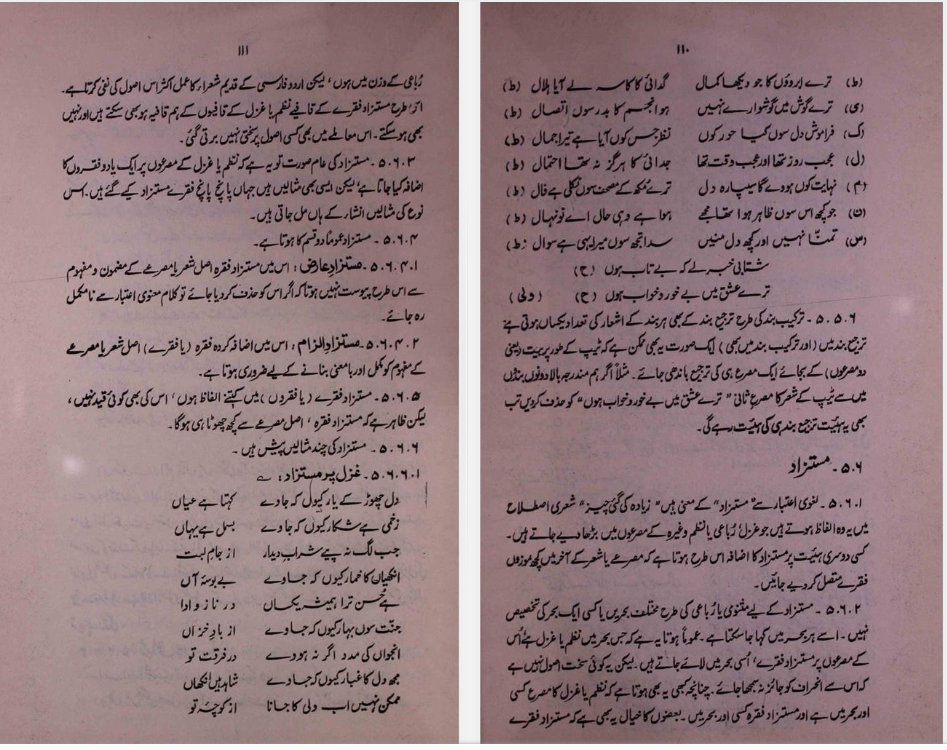 ۱۱۰
(ط) ترے ابروؤں کا جو دیکھا کمال گدائی کا کاسہ لے آیا ہلال (ط)
(ی) ترے گوش میں گوشوارے نہیں ہوا انجم کا بدر سوں اتصال (ط)
(ک) فراموش دل سوں کیا حور کوں نظر جس کوں آیا ہے تیرا جمال (ط)
(ل) عجب روز تھا اور عجب وقت تھا جدائی کا ہرگز نہ تھا احتمال (ط)
(م) نہایت کوں ہووے گا سیپارہ دل ترے مکھ کے مصحف سوں نکلی ہے فال (ط)
(ن) جو کچھ اس سوں ظاہر ہوا تھا مجھے ہوا ہے وہی حال اے نونہال (ط)
(س) تمنّا نہیں اور کچھ دل منیں سدا تجھ سوں میرا یہی ہے سوال (ط)
شتابی خبر لے کہ بے تاب ہوں (ح)
ترے عشق میں بے خور و خواب ہوں (ح) (ولی)
۵.۵.۶ ۔ ترکیب بند کی طرح ترجیع بند کے بھی ہر بند کے اشعار کی تعداد یکساں ہوتی ہے
ترجیع بند میں (اور ترکیب بند میں بھی) ایک صورت یہ بھی ممکن ہے کہ ٹیپ کے طور پر بیت (یعنی
دو مصرعوں) کے بجائے ایک مصرع ہی کی ترجیع باندھی جائے ۔ مثلاً اگر ہم مندرجہ بالا دونوں بندوں
میں سے ٹیپ کے شعر کا مصرع ثانی " ترے عشق میں بے خور و خواب ہوں " کو حذف کر دیں تب
بھی یہ ہیئت ترجیع بند ہی کی ہیئت رہے گی۔
۵.۶ ۔ مستزاد
۵.۶.۱ ۔ لغوی اعتبار سے " مستزاد " کے معنی ہیں " زیادہ کی گئی چیز " شعری اصطلاح
میں یہ وہ الفاظ ہوتے ہیں جو غزل، رُباعی یا نظم وغیرہ کے مصرعوں میں بڑھا دیے جاتے ہیں۔
کسی دوسری ہیئت پر مستزاد کا اضافہ اس طرح ہوتا ہے کہ مصرعے یا شعر کے آخر میں کچھ موزوں
فقرے متصل کر دیے جائیں۔
۵.۶.۲ ۔ مستزاد کے لیے مثنوی یا رُباعی کی طرح مختلف بحریں یا کسی ایک بحر کی تخصیص
نہیں ۔ اسے ہر بحر میں کہا جا سکتا ہے ۔ عموماً ہوتا یہ ہے کہ جس بحر میں نظم یا غزل ہے اُس
کے مصرعوں پر مستزاد فقرے، اُسی بحر میں لائے جاتے ہیں ۔ لیکن یہ کوئی سخت اصول نہیں ہے
کہ اس سے انحراف کو جائز نہ سمجھا جائے ۔ چنانچہ کبھی یہ بھی ہوتا ہے کہ نظم یا غزل کا مصرع کسی
اور بحر میں ہے اور مستزاد فقرہ کسی اور بحر میں ۔ بعضوں کا خیال یہ بھی ہے کہ مستزاد فقرے
۱۱۱
رُباعی کے وزن میں ہوں، لیکن اردو فارسی کے قدیم شعراء کا عمل اکثر اس اصول کی نفی کرتا ہے۔
اسی طرح مستزاد فقرے کے قافیے نظم یا غزل کے قافیوں کے ہم قافیہ ہو بھی سکتے ہیں اور نہیں
بھی ہو سکتے ۔ اس معاملے میں بھی کسی اصول پر سختی نہیں برتی گئی۔
۵.۶.۳ ۔ مستزاد کی عام صورت تو یہ ہے کہ نظم یا غزل کے مصرعوں پر ایک یا دو فقروں کا
اضافہ کیا جاتا ہے، لیکن ایسی بھی مثالیں ہیں جہاں پانچ پانچ فقرے مستزاد کیے گئے ہیں ۔ اس
نوع کی مثالیں انشاء کے ہاں مل جاتی ہیں۔
۵.۶.۴ ۔ مستزاد عموماً دو قسم کا ہوتا ہے۔
۵.۶.۴.۱ ۔ مستزادِ عارض : اس میں مستزاد فقرہ اصل شعر یا مصرعے کے مضمون و مفہوم
سے اس طرح پیوست نہیں ہوتا کہ اگر اس کو حذف کر دیا جائے تو کلام معنوی اعتبار سے نامکمل
رہ جائے۔
۵.۶.۴.۲ ۔ مستزادِ الزام : اس میں اضافہ کردہ فقرہ (یا فقرے) اصل شعر یا مصرعے
کے مفہوم کو مکمل اور با معنی بنانے کے لیے ضروری ہوتا ہے۔
۵.۶.۵ ۔ مستزاد فقرے (یا فقروں) میں کتنے الفاظ ہوں، اس کی بھی کوئی قید نہیں،
لیکن ظاہر ہے کہ مستزاد فقرہ، اصل مصرعے سے کچھ چھوٹا ہی ہو گا۔
۵.۶.۶ ۔ مستزاد کی چند مثالیں پیش ہیں ۔
۵.۶.۶.۱ ۔ غزل پر مستزاد : ؎
دل چھوڑ کے یار کیوں کہ جاوے کہتا ہے عیاں
زخمی ہے شکار کیوں کہ جاوے بسمل ہے یہاں
جب لگ نہ پیے شراب دیدار از جامِ لبت
انکھیاں کا خمار کیوں کہ جاوے بے بوسۂ آں
ہے حُسن ترا ہمیشہ یکساں در ناز و ادا
جنّت سوں بہار کیوں کہ جاوے از بادِ خزاں
انجواں کی مدد اگر نہ ہووے در فرقتِ تو
مجھ دل کا غبار کیوں کہ جاوے شاہد ہیں انکھاں
ممکن نہیں اب ولی کا جانا از کوچۂ تو